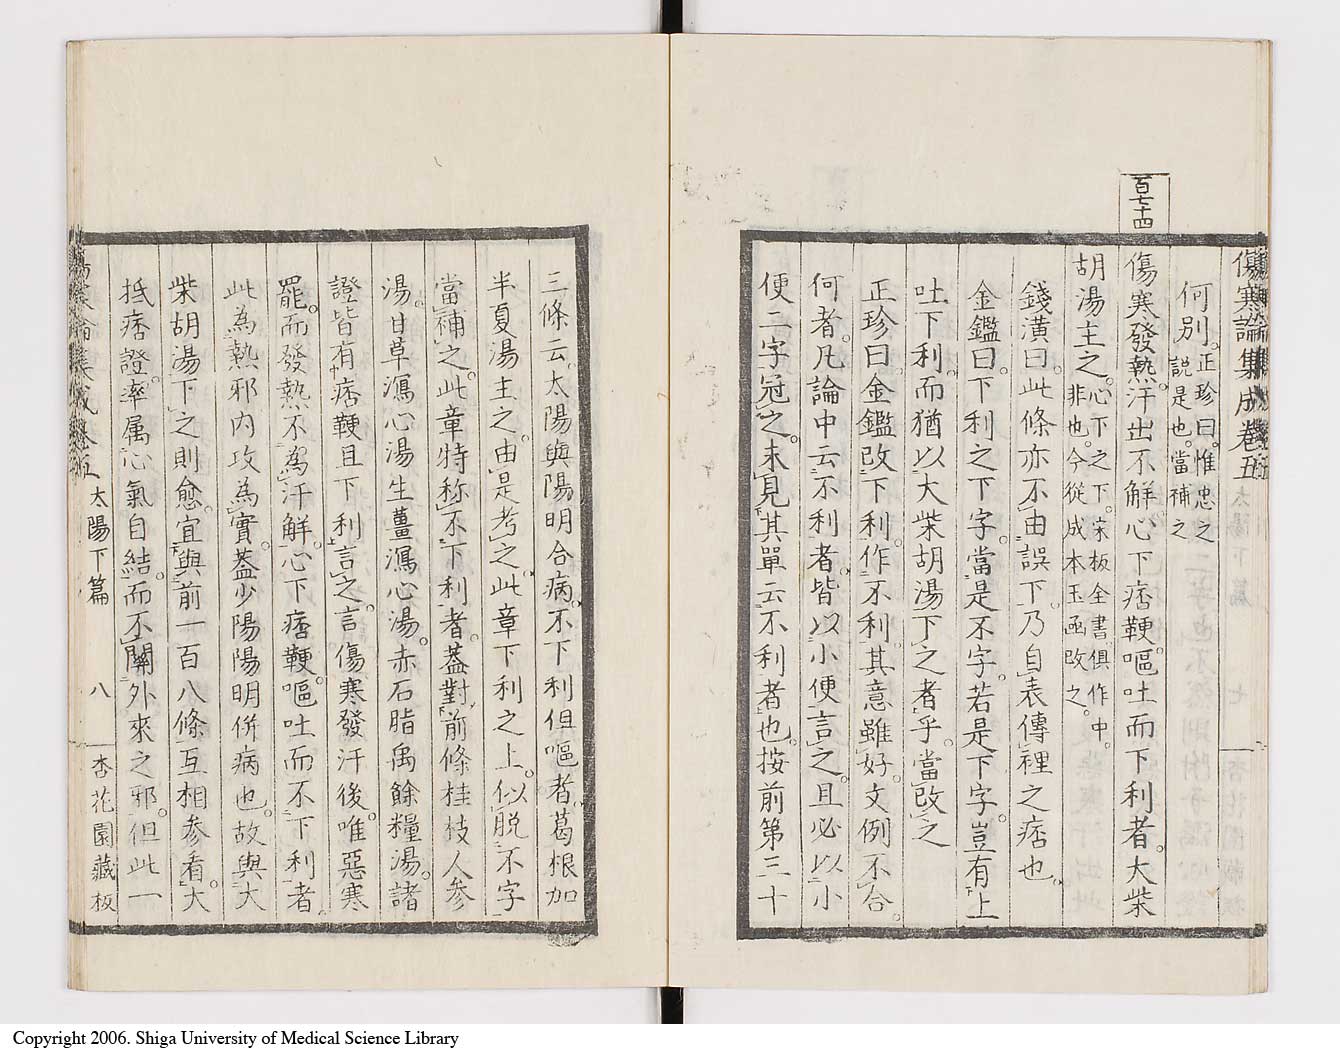 百七十四
傷寒論集成卷五
何別。正珍曰。惟忠之
說是也。當補之
傷寒發熱。汗出不解。心下痞鞕。嘔吐而下利者。大柴
胡湯主之。心下之下。宋板全書俱作中。
非也。今從成本玉函改之。
錢潢曰。此條亦不由誤下。乃自表傳裡之痞也。
金鑑曰。下利之下字。當是不字。若是下字。豈有上
吐下利。而猶以大柴胡湯下之者乎。當改之
正珍曰。金鑑改下利。作不利。其意雖好。文例不合。
何者。凡論中云不利者。皆以小便言之。且必以小
便二字冠之。未見其單云不利者也。按前第三十
三條云。太陽與陽明合病。不下利但嘔者。葛根加
半夏湯主之。由是考之。此章下利之上。似脫不字
當補之。此章特称不下利者。蓋對前條桂枝人參
湯。甘草瀉心湯生薑瀉心湯。赤石脂禹餘糧湯。諸
證皆有痞鞕且下利言之。言傷寒發汗後。唯惡寒
罷。而發熱不為汗解。心下痞鞕。嘔吐而不下利者。
此為熱邪內攻為實。蓋少陽陽明併病也。故與大
柴胡湯下之則愈。宜與前一百八條互相參看。大
抵痞證。率属心氣自結。而不關外來之邪。但此一
傷寒論集成卷五
太陽下篇
八
杏花園藏板